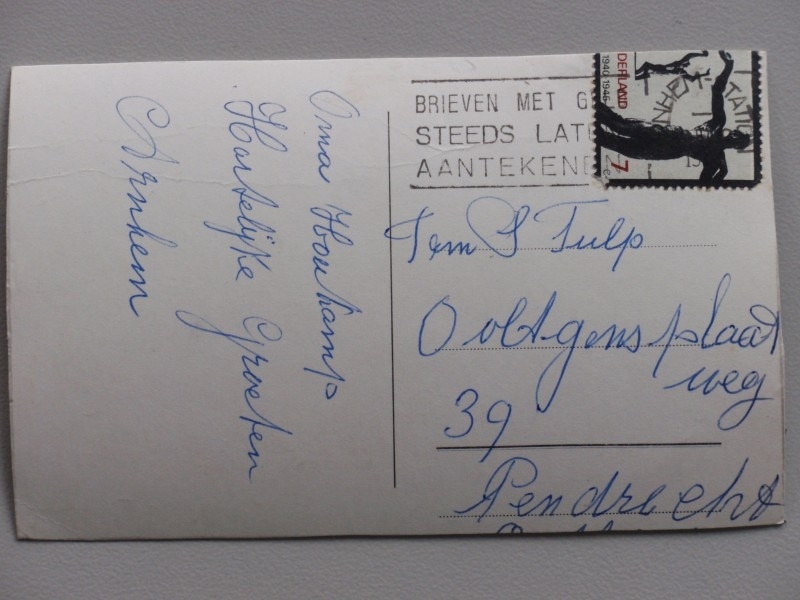 Arnhem
Hartelijke Groeten
Oma Houkamp
BRIEVEN MET G
STEEDS LATE
AANTEKENEN
DERLAND
1940 1945
7
STATION
19
Fem S Tulp
Ooltgensplaat
weg
39
Pendrecht